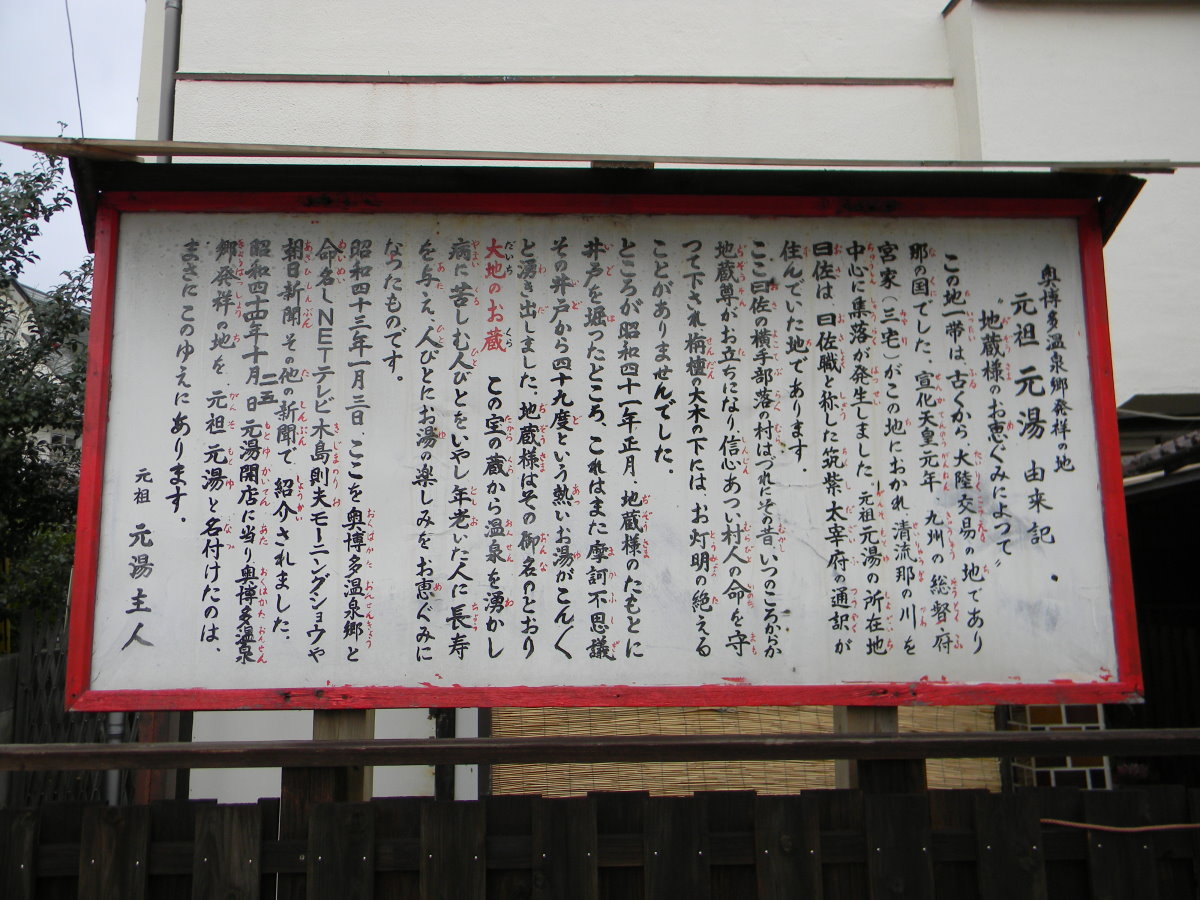 奥博多温泉郷発祥の地
元祖元湯 由来記
〝地蔵様のお恵ぐみによって〟
この地一帯は古くから、大陸交易の地であり
那の国でした、宣化天皇元年 九州の総督府
宮家(三宅)がこの地におかれ 清流那の川を
中心に集落が発生しました 元祖元湯の所在地
曰佐は 曰佐職と称した筑紫 大宰府の通訳が
住んでいた地であります。
ここ曰佐の横手部落の村はづれにその昔いつのころからか
地蔵尊がお立ちになり信心あつい村人の命を守
つて下され栴檀の大木の下には、お灯明の絶える
ことがありませんでした。
ところが昭和四十一年正月、地蔵様のたもとに
井戸を堀つたどころ、これはまた摩訶不思議
その井戸から四十九度という熱いお湯がこんく
と湧き出しました、地蔵様はその御名のとおり
大地のお蔵 この宝の蔵から温泉を湧かし
病に苦しむ人びとをいやし年老いた人に長寿
を与え、人びとにお湯の楽しみをお恵ぐみに
なったものです。
昭和四十三年一月三日 ここを奥博多温泉郷と
命名しNETテレビ木島則夫モーニングショウや
朝日新聞その他の新聞で、紹介されました、
昭和四十四年十月二五日 元湯開店に当り奥博多温泉
郷発祥の地を 元祖元湯と名付けたのは、
まさにこのゆえにあります。
元祖 元湯主人